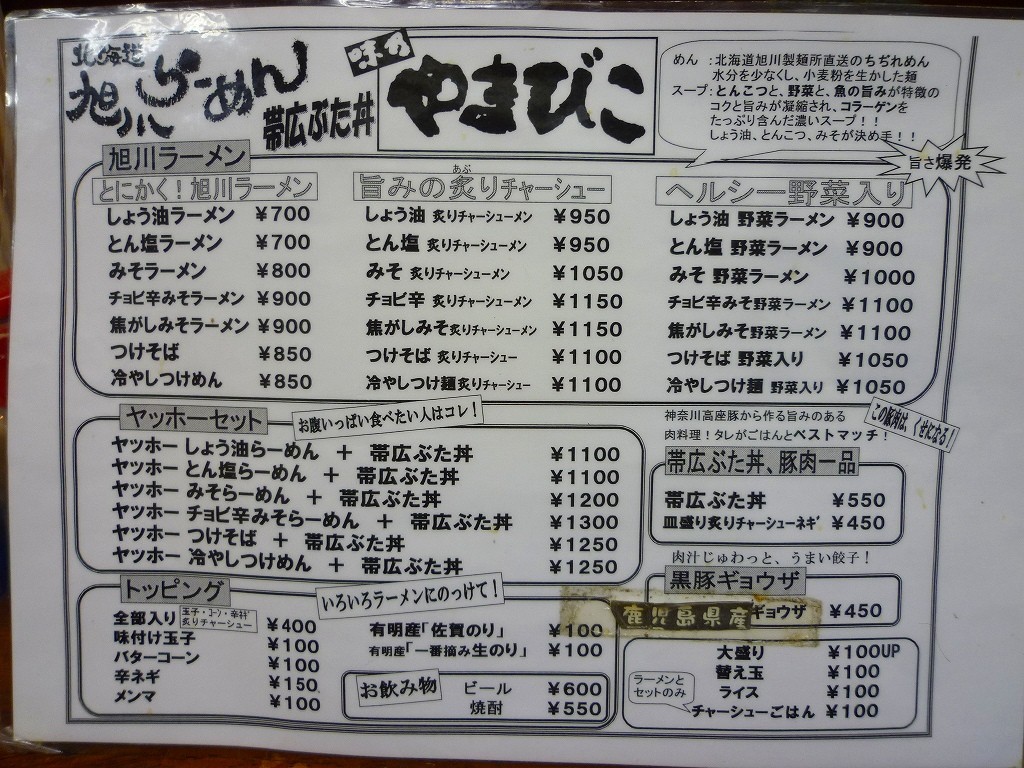 北海道
旭川らーめん
帯広ぶた丼
味の
やまびこ
めん :北海道旭川製麺所直送のちぢれめん
水分を少なくし、小麦粉を生かした麺
スープ:とんこつと、野菜と、魚の旨みが特徴の
コクと旨みが凝縮され、コラーゲンを
たっぷり含んだ濃いスープ!!
しょう油、とんこつ、みそが決め手!!
旨さ爆発
旭川ラーメン
とにかく!旭川ラーメン
しょう油ラーメン ¥700
とん塩ラーメン ¥700
みそラーメン ¥800
チョビ辛みそラーメン ¥900
焦がしみそラーメン ¥900
つけそば ¥850
冷やしつけめん ¥850
あぶ
旨みの炙りチャーシュー
しょう油 炙りチャーシューメン ¥950
とん塩 炙りチャーシューメン ¥950
みそ 炙りチャーシューメン ¥1050
チョビ辛 炙りチャーシューメン ¥1150
焦がしみそ炙りチャーシューメン ¥1150
つけそば 炙りチャーシュー ¥1100
冷やしつけ麺炙りチャーシュー ¥1100
ヘルシー野菜入り
しょう油 野菜ラーメン ¥900
とん塩 野菜ラーメン ¥900
みそ 野菜ラーメン ¥1000
チョビ辛みそ野菜ラーメン ¥1100
焦がしみそ野菜ラーメン ¥1100
つけそば 野菜入り ¥1050
冷やしつけ麺 野菜入り ¥1050
ヤッホーセット
お腹いっぱい食べたい人はコレ!
ヤッホー しょう油らーめん + 帯広ぶた丼 ¥1100
ヤッホー とん塩らーめん + 帯広ぶた丼 ¥1100
ヤッホー みそらーめん + 帯広ぶた丼 ¥1200
ヤッホー チョビ辛みそらーめん + 帯広ぶた丼 ¥1300
ヤッホー つけそば + 帯広ぶた丼 ¥1250
ヤッホー 冷やしつけめん + 帯広ぶた丼 ¥1250
神奈川高座豚から作る旨みのある
肉料理!タレがごはんとベストマッチ!
この豚肉は、くせになる!
帯広ぶた丼、豚肉一品
帯広ぶた丼 ¥550
皿盛り炙りチャーシューネギ ¥450
肉汁じゅわっと、うまい餃子!
黒豚ギョウザ
鹿児島県産ギョウザ ¥450
トッピング
いろいろラーメンにのっけて!
全部入り 玉子・コーン・辛ネギ 炙りチャーシュー ¥400
味付け玉子 ¥100
バターコーン ¥100
辛ネギ ¥150
メンマ ¥100
有明産「佐賀のり」 ¥100
有明産「一番摘み生のり」 ¥100
お飲み物
ビール ¥600
焼酎 ¥550
大盛り ¥100UP
替え玉 ¥100
ライス ¥100
チャーシューごはん ¥100
ラーメンと
セットのみ